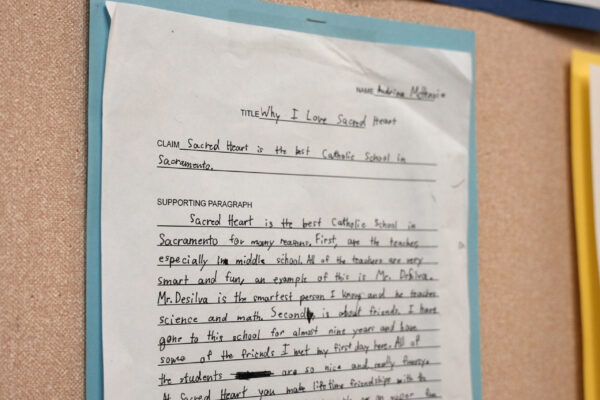 NAME Andrina McHenzie
TITLE Why I Love Sacred Heart
CLAIM Sacred Heart is the best Catholic School in
Sacramento.
SUPPORTING PARAGRAPH
Sacred Heart is the best Catholic School in
Sacramento for many reasons. First, are the teaches
especially in middle school. All of the teachers are very
smart and fun, an example of this is Mr. Desilva.
Mr. Desilva is the smartest person I know and he teaches
science and math. Second, is about friends. I have
gone to this school for almost nine years and have
some of the friends I met my first day here. All of
the students are so nice and really funny.
At Sacred Heart you make lifetime friendships with to